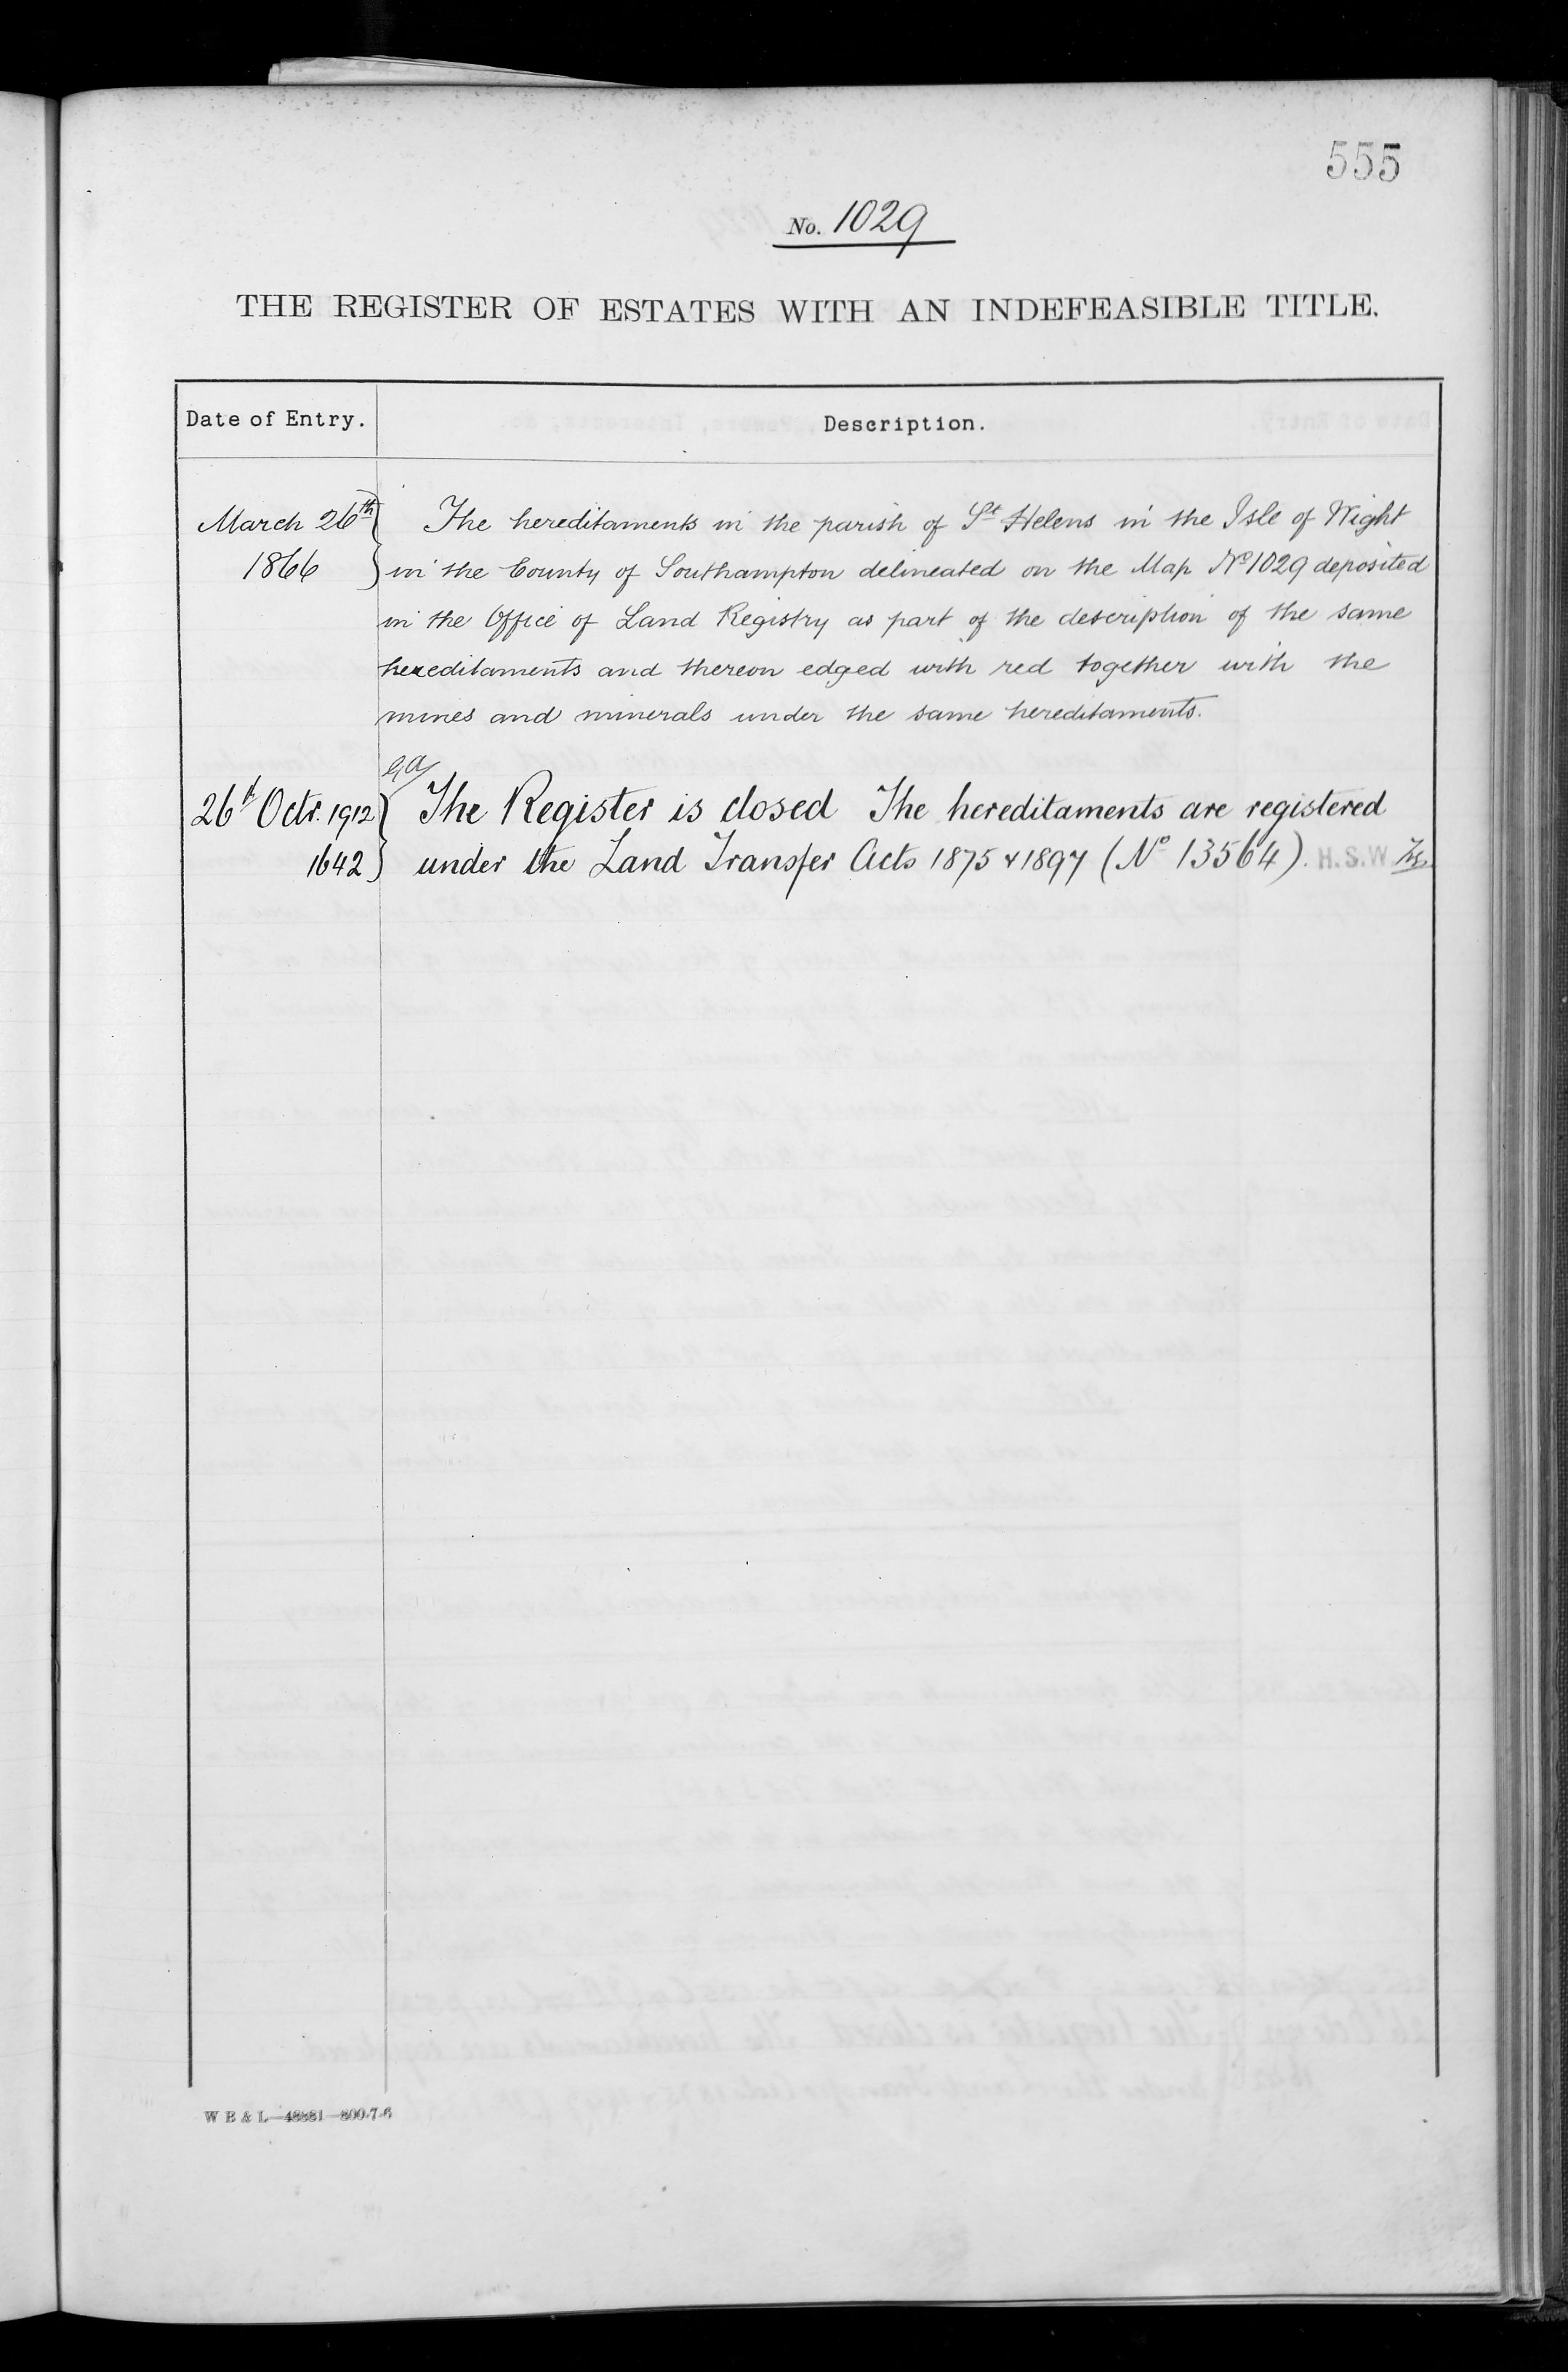 555
No. 1029
THE REGISTER OF ESTATES WITH AN INDEFEASIBLE TITLE.
Date of Entry. Description.
March 26th The hereditaments in the parish of St Helens in the Isle of Wight
1866 in the County of Southampton delineated on the Map No 1029 deposited
in the Office of Land Registry as part of the description of the same
hereditaments and thereon edged with red together with the
mines and minerals under the same hereditaments.
26th Octr. 1912 The Register is closed The hereditaments are registered
1642 under the Land Transfer Acts 1875 & 1897 (No 13564). H.S.W
W B & L—48881—800-7-6